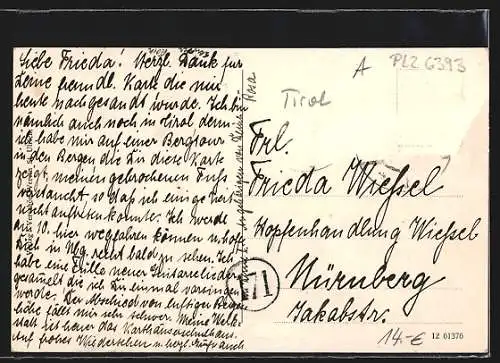 Liebe Frieda! Herzl. Dank für
Deine freundl. Karte die mir
heute nachgesandt wurde. Ich bin
nämlich auch noch in Tirol denn
ich habe mir auf einer Bergtour
in den Bergen die Dir diese Karte
zeigt, meinen gebrochenen Fuß
verstaucht, so daß ich eine
nicht auftreten konnte. Ich werde
am 10. hier wegfahren können u. hoffe
Dich in Nbg. recht bald zu sehen. Ich
habe eine Fülle neuer Guitarrelieder
gesammelt die ich Dir einmal vorsingen
werde. Der Abschied von
fällt mir sehr schwer. Meine
statt ist heuer das
Auf frohes Wiedersehen u. herzl. Gruß auch
Deine
Rosa
A
PLZ 6393
Tirol
Frl.
Frieda Wießel
Hopfenhandlung Wießel
Nürnberg
Jakobstr.
71
14.-€
12 61376